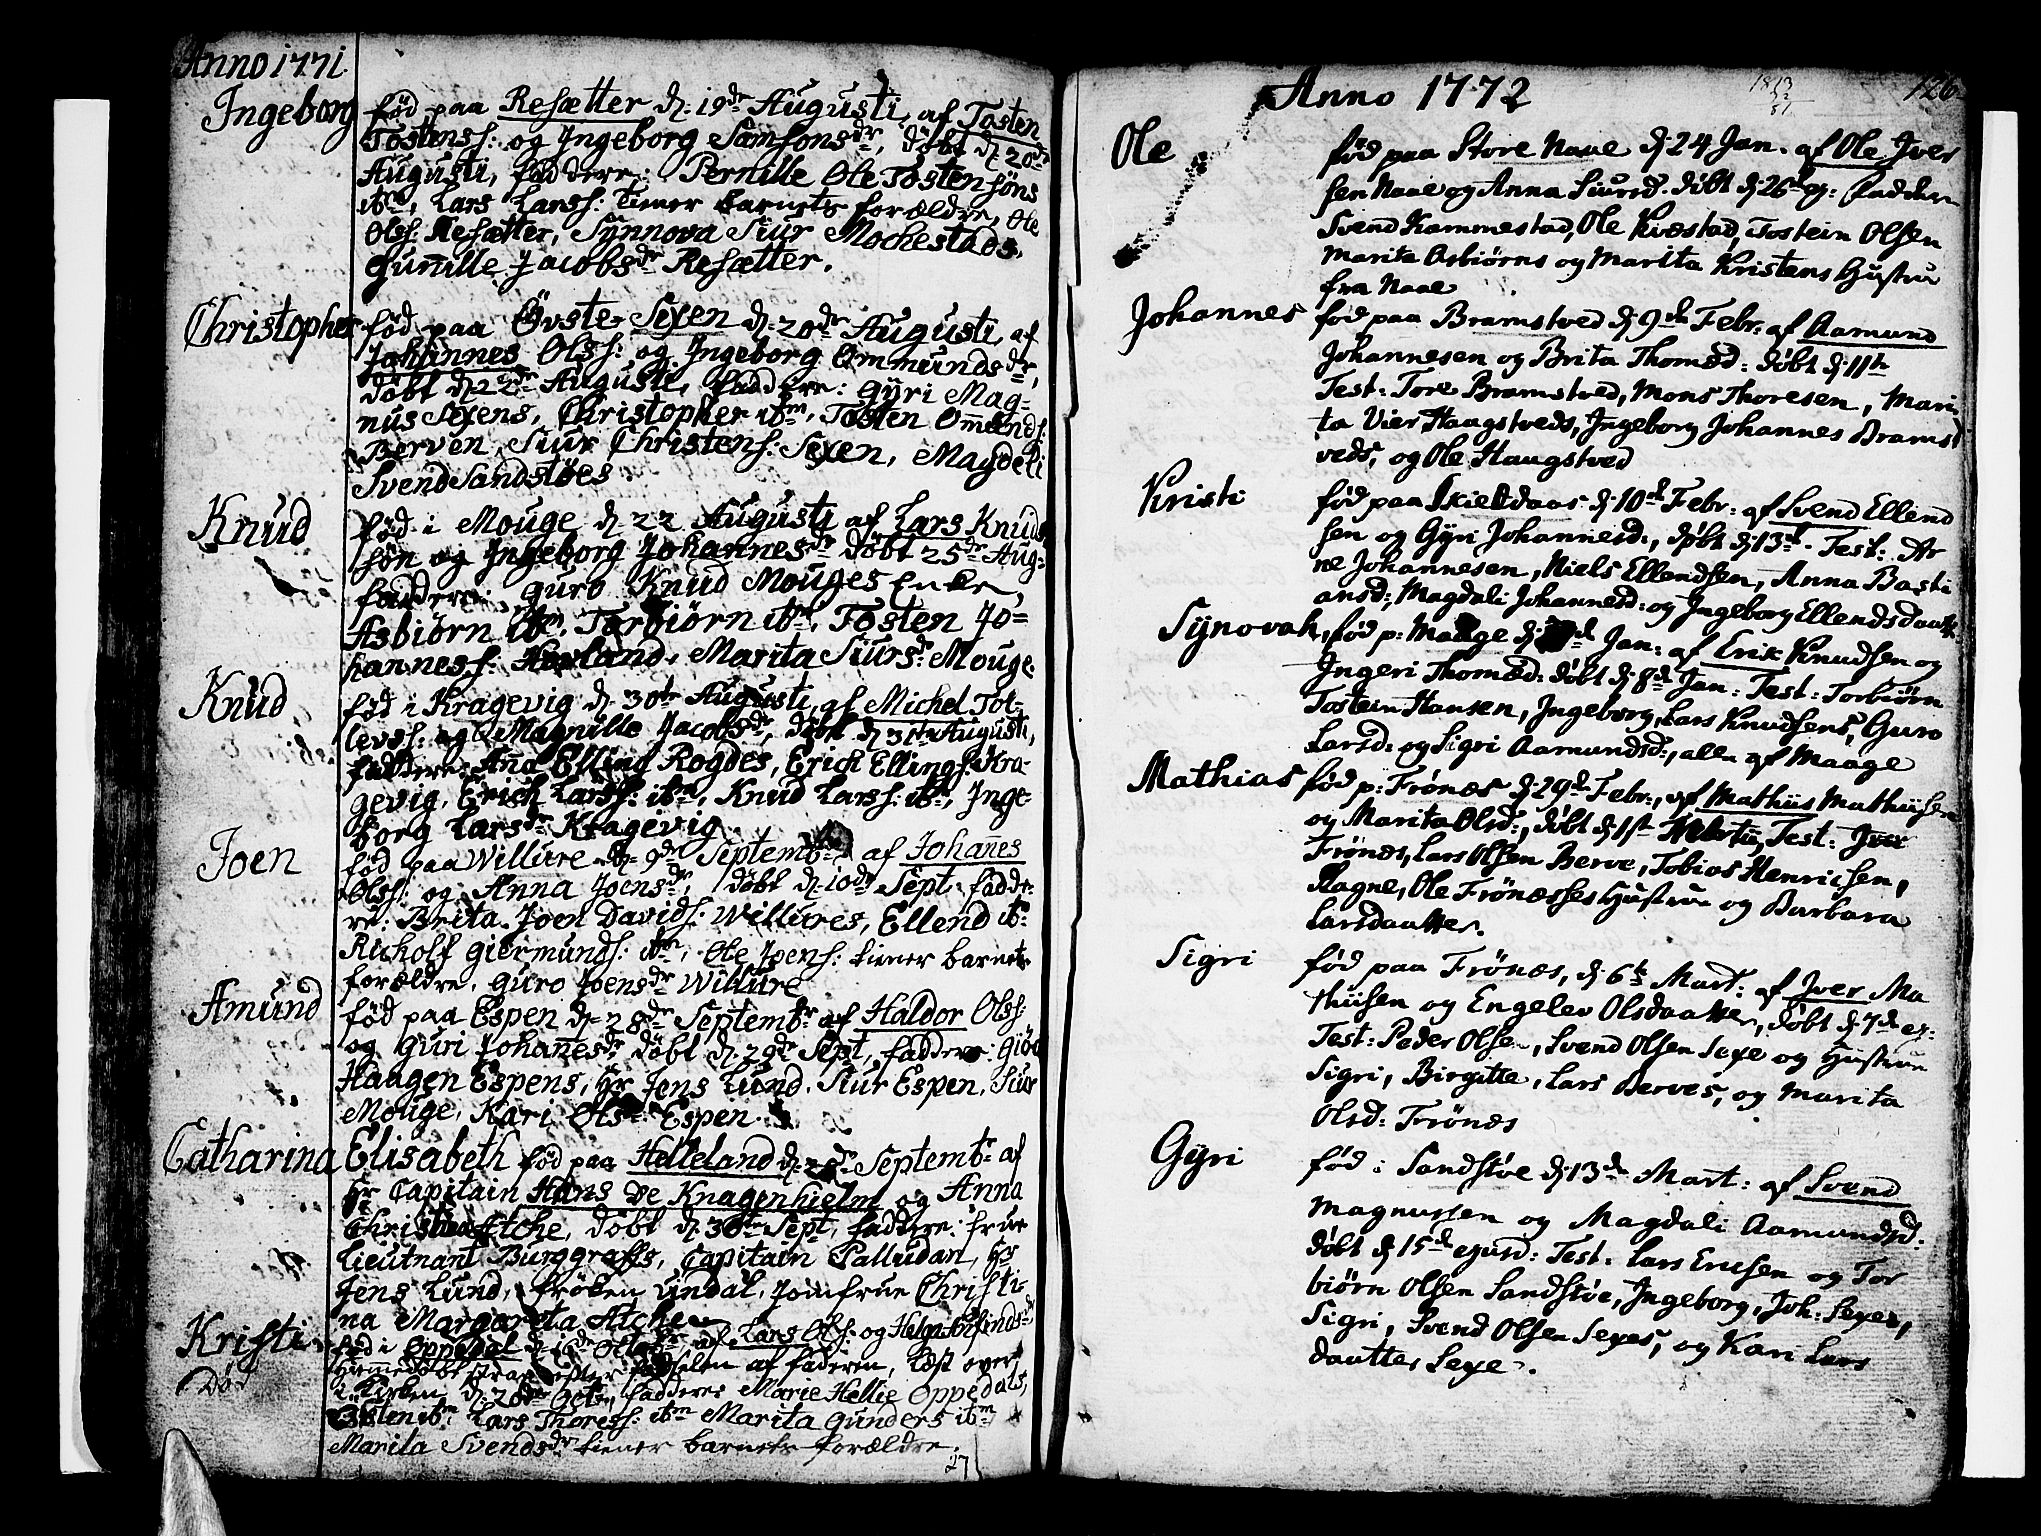 Anno 1771
Ingeborg
fød paa Resætter d. 19de Augusti, af Tosten
Tostens: og Ingeborg Samsonsdr, døbt d. 20de
Augusti, faddere: Pernille Ole Tostensøns
ibm, Lars Larss: tiener barnets forældre, Ole
Olss: Resætter, Synnova Siur Mochestads,
Gunille Jacobsdr Resætter.
Christopher
fød paa Øvste Sexen d. 20de Augusti, af
Johannes Olss: og Ingeborg Ommundsdr,
døbt d. 22de Augusti, faddere: Gÿri Mag-
nus Sexens, Christopher ibm, Tosten Omunds:
Berven, Siur Christens: Sexen, Magdeli
Svend Sandstøes.
Knud
fød i Mouge d. 22 Augusti af Lars Knud-
søn og Ingeborg Johannesdr døbt 25de Aug-
faddere: Guro Knud Mouges Enke,
Asbiørn ibm, Torbiørn ibm, Tosten Jo=
hanness: Hovland, Marita Siursdr Mouge.
Knud
fød i Kragevig d. 30te Augusti, af Michel Tol-
levss: og Magnille Jacobsdr, døbt d. 31te Augusti,
faddere: Ana Elling Rogdes, Erich Ellings: Kra-
gevig, Erich Larss: ibm, Knud Larss: ibm, Inge-
borg Larsdr Kragevig.
Joen
fød paa Willure d. 9de Septembr af Johanes
Olss: og Anna Joensdr, døbt d. 10de Sept, fadde-
re: Brita Joen Davids: Willures, Ellend ibm
Richolf Giermunds: ibm, Ole Joens: tiener barnets
forældre, Guro Joensdr Willure
Amund
fød paa Espen d. 28de Septembr af Haldor Olss:
og Guri Johanesdr, døbt d. 29de Sept, faddere: Giøa
Haagen Espens, Hr Jens Lund, Siur Espen, Siur
Mouge, Kari Olsdr Espen.
Catharina Elisabeth fød paa Helleland d. Septembr af
Hr Capitain Hans de Knagenhielm og Anna
Christina Atche, døbt d. 30te Sept, faddere: frue
Lieutnant Burggrafs, Capitain Palludan, Hr
Jens Lund, frøken Lindal, Jomfrue Christi-
na Margareta Atche
Kristi
Død
fød i Oppedal d. 16de Octobr, af Lars Olss: og Helga
hiemmedøbt strax efter fødselen af faderen, læst over
i Kirken d. 20de Octbr, faddere: Marie Hellie Oppedals,
ibm, Lars Thoress: ibm Marita Gunders ibm
Marita Svendsdr tiener barnets forældre.
27
Anno 1772
126
Ole
fød paa Store Naae d. 24 Jan. af Ole Iver
sen Naae og Anna Siursd: døbt d. 26 ej: Faddere
Svend Kammestad, Ole Kvæstad, Tostein Olsen
Marita Asbiørns og Marita Kristens Hustru
fra Naae
Johannes
fød paa Bramstved d. 9de Febr: af Aamund
Johannesen og Brita Thomæd: døbt d. 11te
Test: Tore Bramstved, Mons Thoresen, Mari
ta Vier Haagstveds, Ingeborg Johannes Bramst
veds, og Ole Haugstved
Kristi
fød paa Skieldaas d. 10de Febr: af Svend Ellend
sen og Gÿri Johannesd:, døbt d. 13de. Test: Ar
ne Johannesen, Niels Ellendsen, Anna Basti
ansd:, Magdali Johannesd: og Ingeborg Ellendsdaatter
Synovah,
fød p: Maage d. Jan: af Erik Knudsen og
Ingeri Thomæd: døbt d. 8de Jan: Test: Torbiørn
Tostein Hansen, Ingeborg, Lars Knudsens, Guro
Larsd: og Sigri Aamundsd:, alle af Maage
Mathias
fød p: Frönæs d. 29de Febr:, af Mathiis Mathiisen
og Marita Olsd:, døbt d. 1ste Martii, Test: Iver
Frönæs, Lars Olsen Berve, Tobias Henrichsen,
Hagne, Ole Frönæsses Hustru og Barbara
Larsdaatter.
Sigri
fød paa Frönæs, d. 6te Mart: af Iver Ma
thiisen og Engelev Olsdaatter, døbt d. 7de ej:
Test: Peder Olsen, Svend Olsen Sexe og Hustrue
Sigri, Birgitte, Lars Berves, og Marita
Olsd: Frönæs
Gÿri
fød i Sandstøe d. 13de Mart: af Svend
Magnussen og Magdali Aamundsd:
døbt d. 15de ejusd: Test: Lars Ericsen og Tor
biørn Olsen Sandstøe, Ingeborg, Joh: Sexes,
Sigri, Svend Olsen Sexes, og Kari Lars
daatter Sexe.